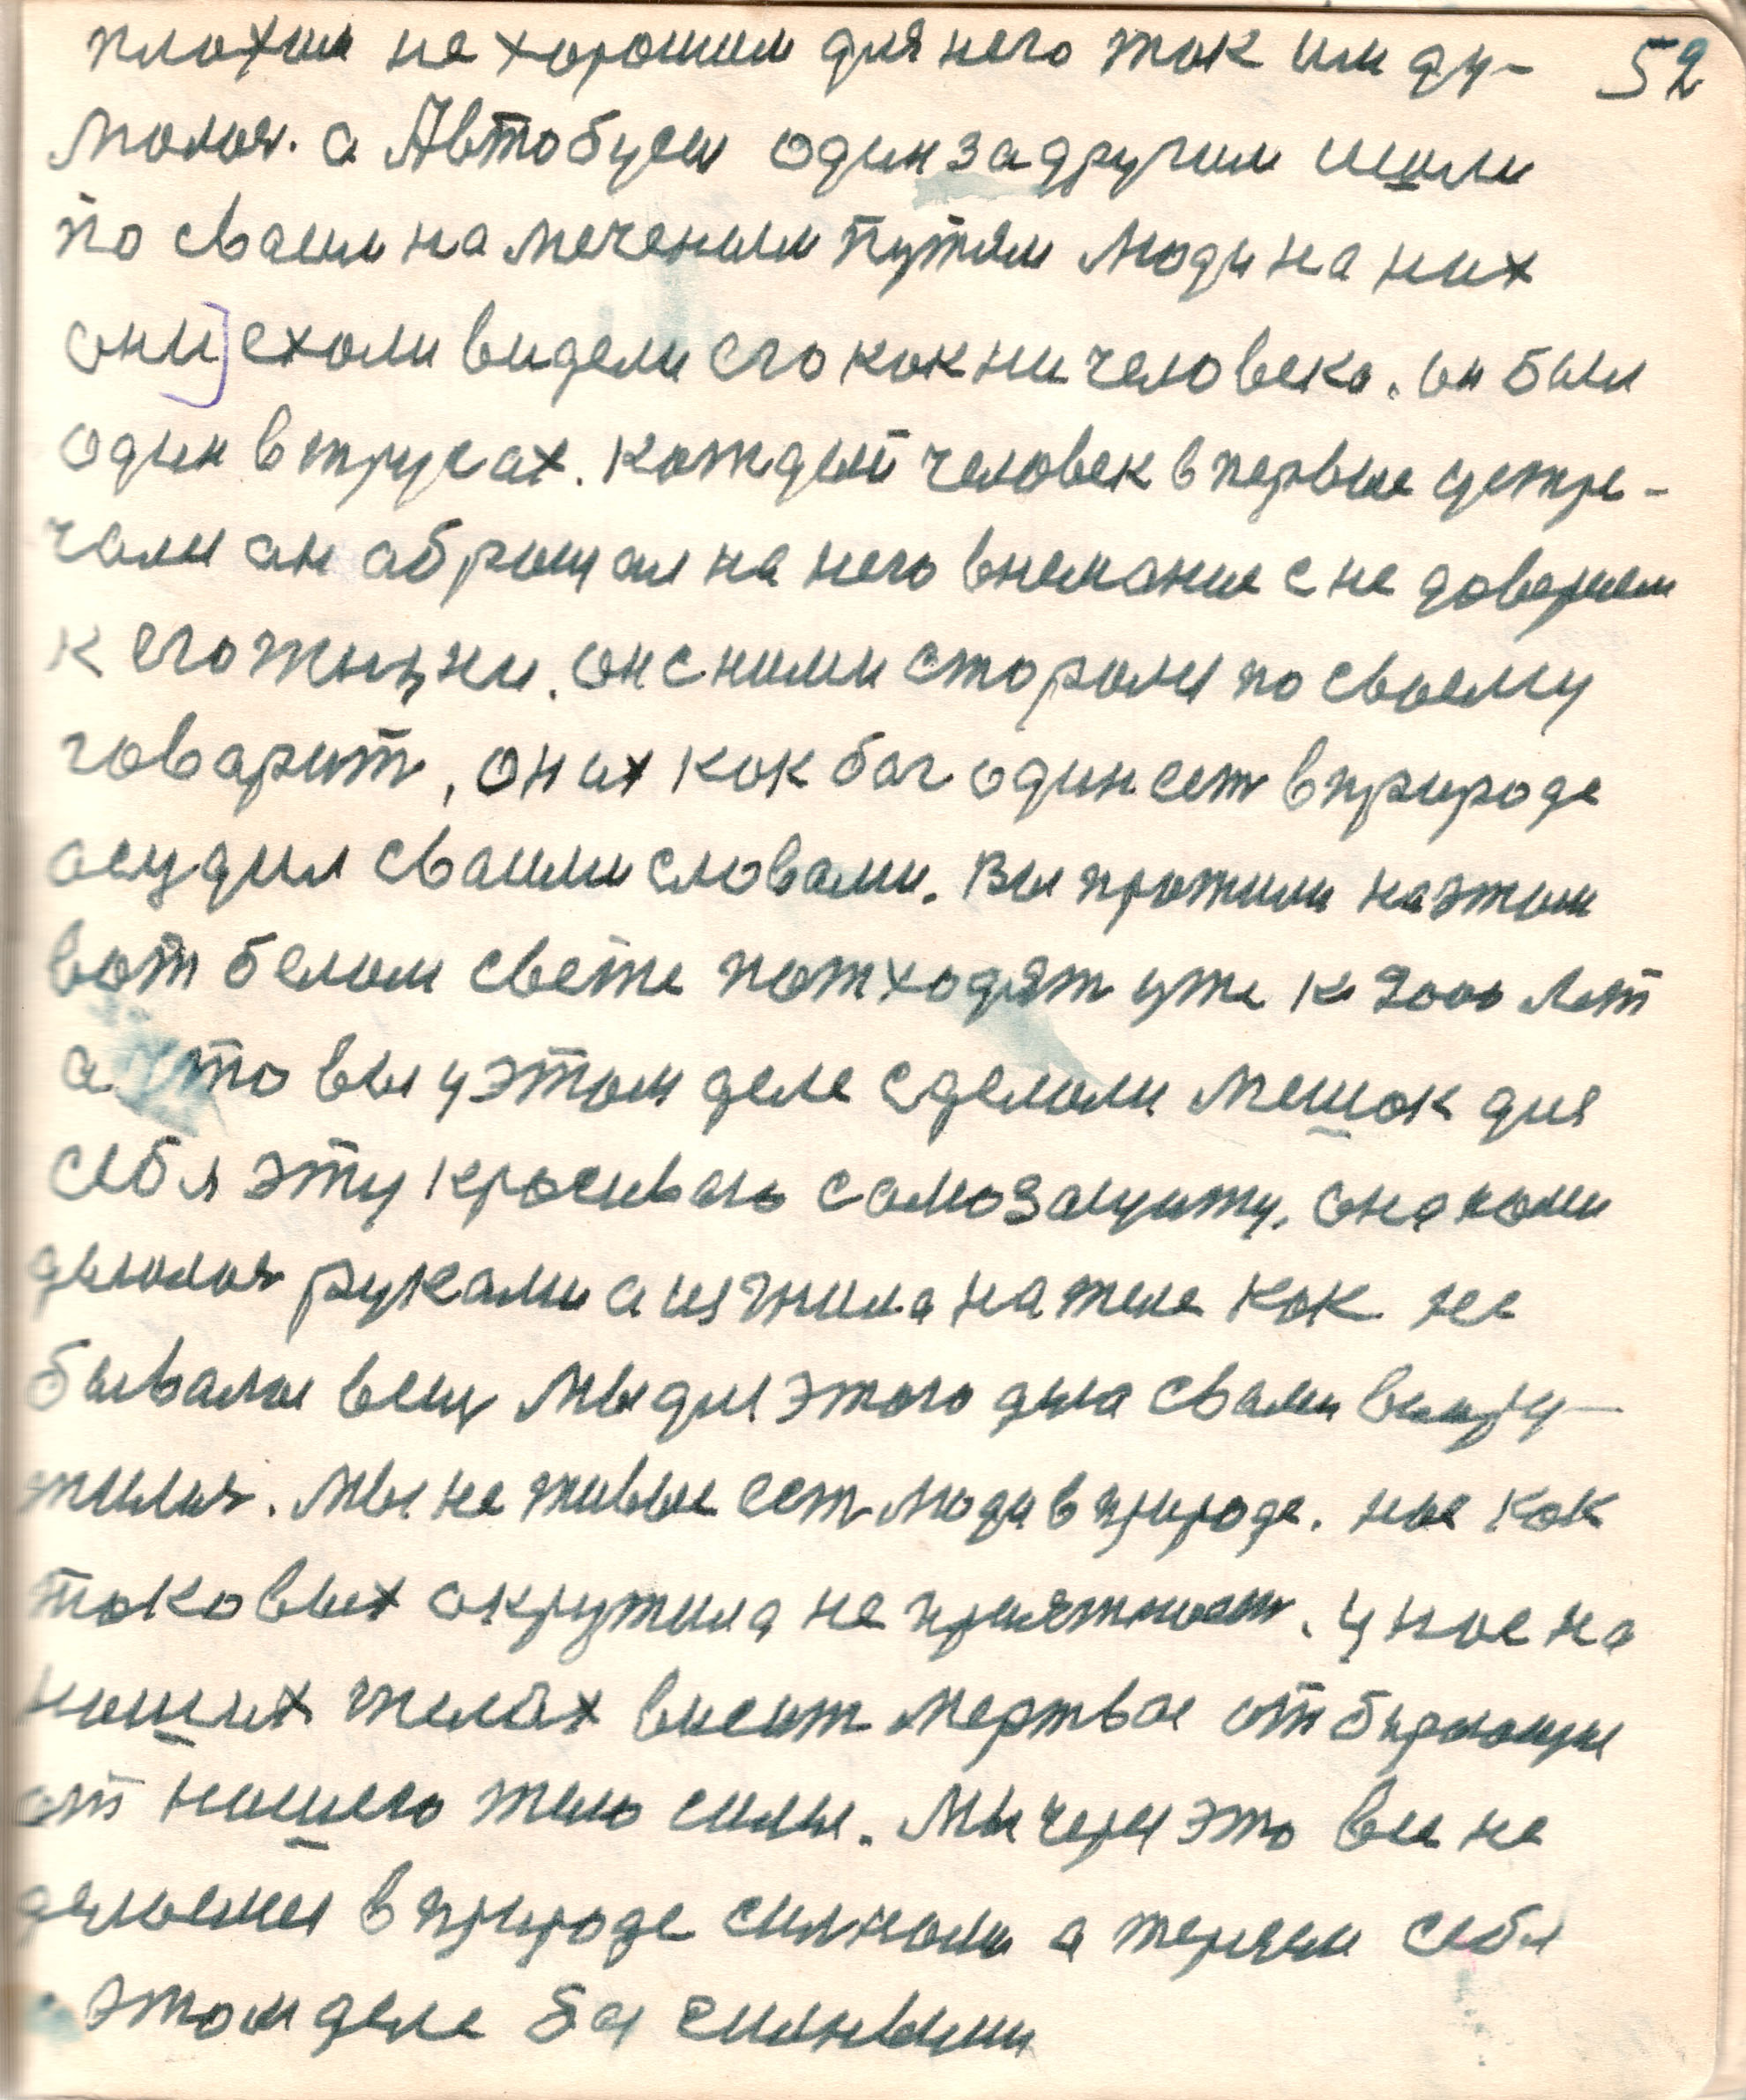 плохим не хорошим для него так им ду- 52
малас. а Автобусы один за другим ишли
по сваим намеченым путям люди на них
они] ехали видели его как ни человека. он был
один в трусах. каждый человек впервые устре-
чали ан абращал на него внемание с не доверием
к его жызни. он с ними старалс по своему
говарит, он их как бог один ест в природе
асудил сваими словами. Вы прожили на этом
вот белом свете потходят уже к 2000 лет
а то вы у этом деле сделали мешок для
себя эту красиваю самозащиту. она нами
делалас руками а изжила на теле как не
бывалаи вещ мы для этого дела сваем выпру-
жилис. Мы не живые ест люди в природе. нас как
таковых окружила не приятност. у нас на
наших телах висит мертвае отбирающие
от нашего тело силы. Мы через это все не
делаемся в природе силнами а теряем себя
этом деле без силнвыми